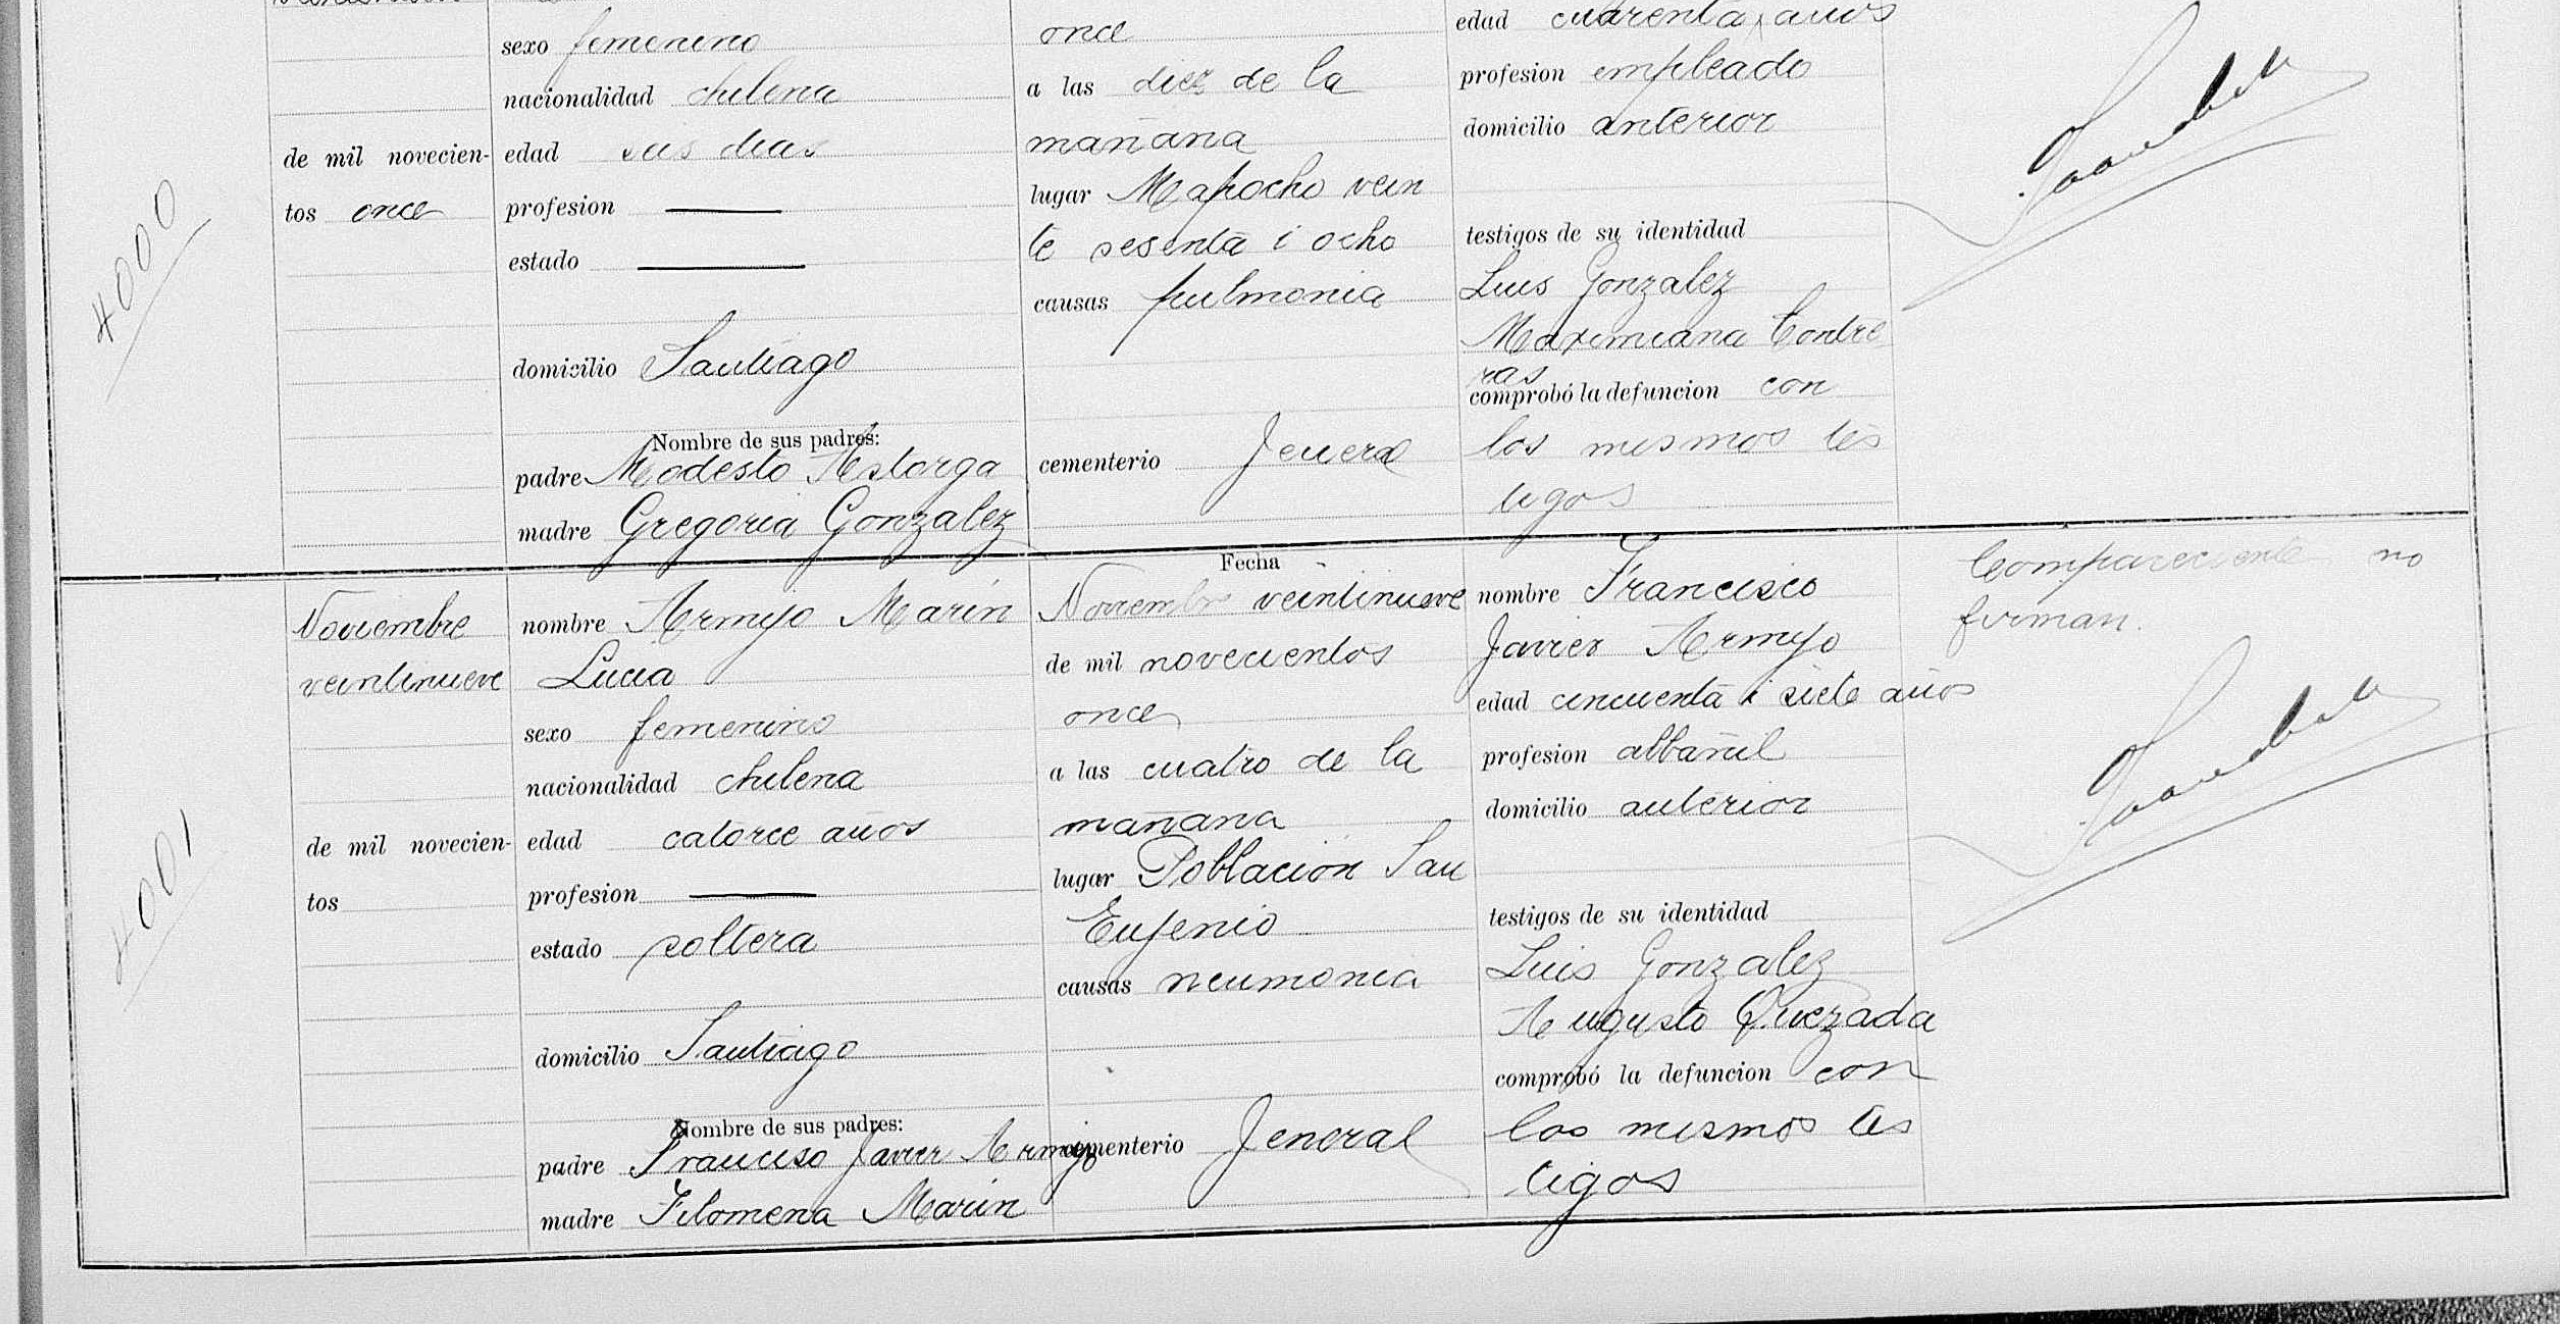 4000
de mil novecien-
tos once
sexo femenino
nacionalidad chilena
edad seis dias
profesion
estado
domicilio Santiago
Nombre de sus padres:
padre Modesto Astorga
madre Gregoria Gonzalez
once
a las diez de la
mañana
lugar Mapocho vein
te sesenta i ocho
causas pulmonia
cementerio Jeneral
edad cuarenta años
profesion empleado
domicilio anterior
testigos de su identidad
Luis Gonzalez
Maximiana Contre
ras
comprobó la defuncion con
los mismos tes
tigos
4001
Noviembre
veintinueve
de mil novecien-
tos
nombre Armijo Marin
Lucia
sexo femenino
nacionalidad chilena
edad catorce años
profesion
estado soltera
domicilio Santiago
Nombre de sus padres:
padre Francisco Javier Armijo
madre Filomena Marin
Fecha
Noviembre veintinueve
de mil novecientos
once
a las cuatro de la
mañana
lugar Poblacion San
Eujenio
causas neumonia
cementerio Jeneral
nombre Francisco
Javier Armijo
edad cincuenta i siete años
profesion albañil
domicilio anterior
testigos de su identidad
Luis Gonzalez
Augusto Quezada
comprobó la defuncion con
los mismos tes
tigos
Compareciente no
firman.